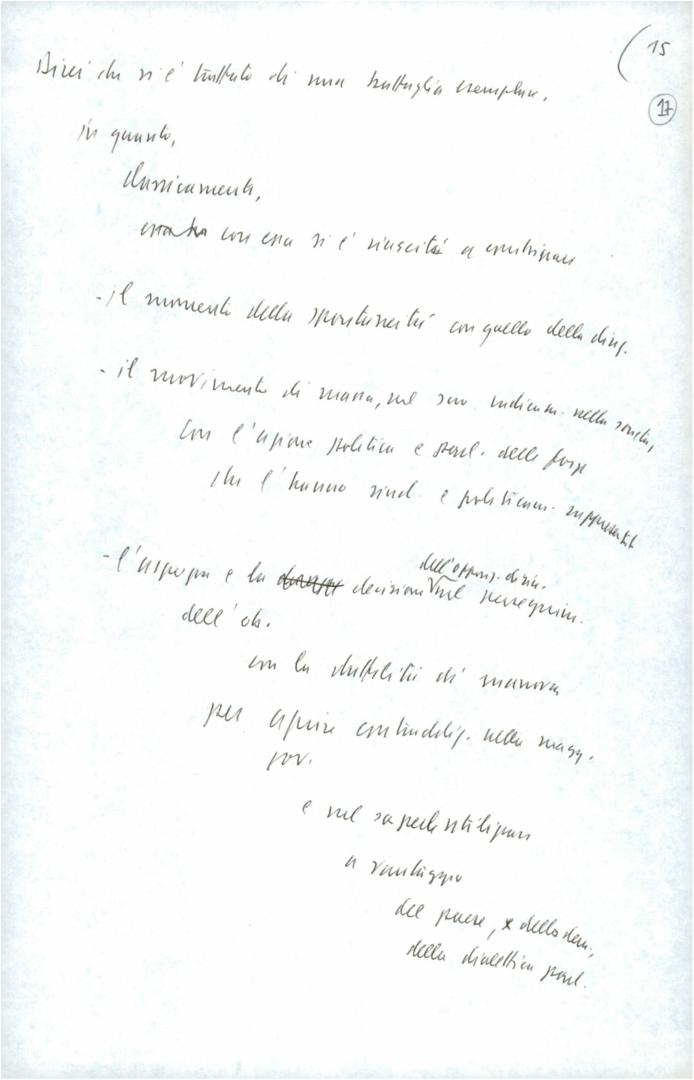 (15
17
Direi che si è trattato di una battaglia esemplare,
in quanto,
classicamente,
con essa si è riuscita a combinare
- il momento della spontaneità con quello della direz.
- il movimento di massa, nel suo radicam. nella società,
con l'azione politica e parl. delle forze
che l'hanno sind. e politicam. rappresentat.
- l'asprezza e la decisione dell'oppos. di sin. nel perseguim.
dell'ob.
con la duttilità di manovra
per aprire contraddiz. nella magg.
gov.
e nel saperle utilizzare
a vantaggio
del paese, della dem.,
della dialettica parl.